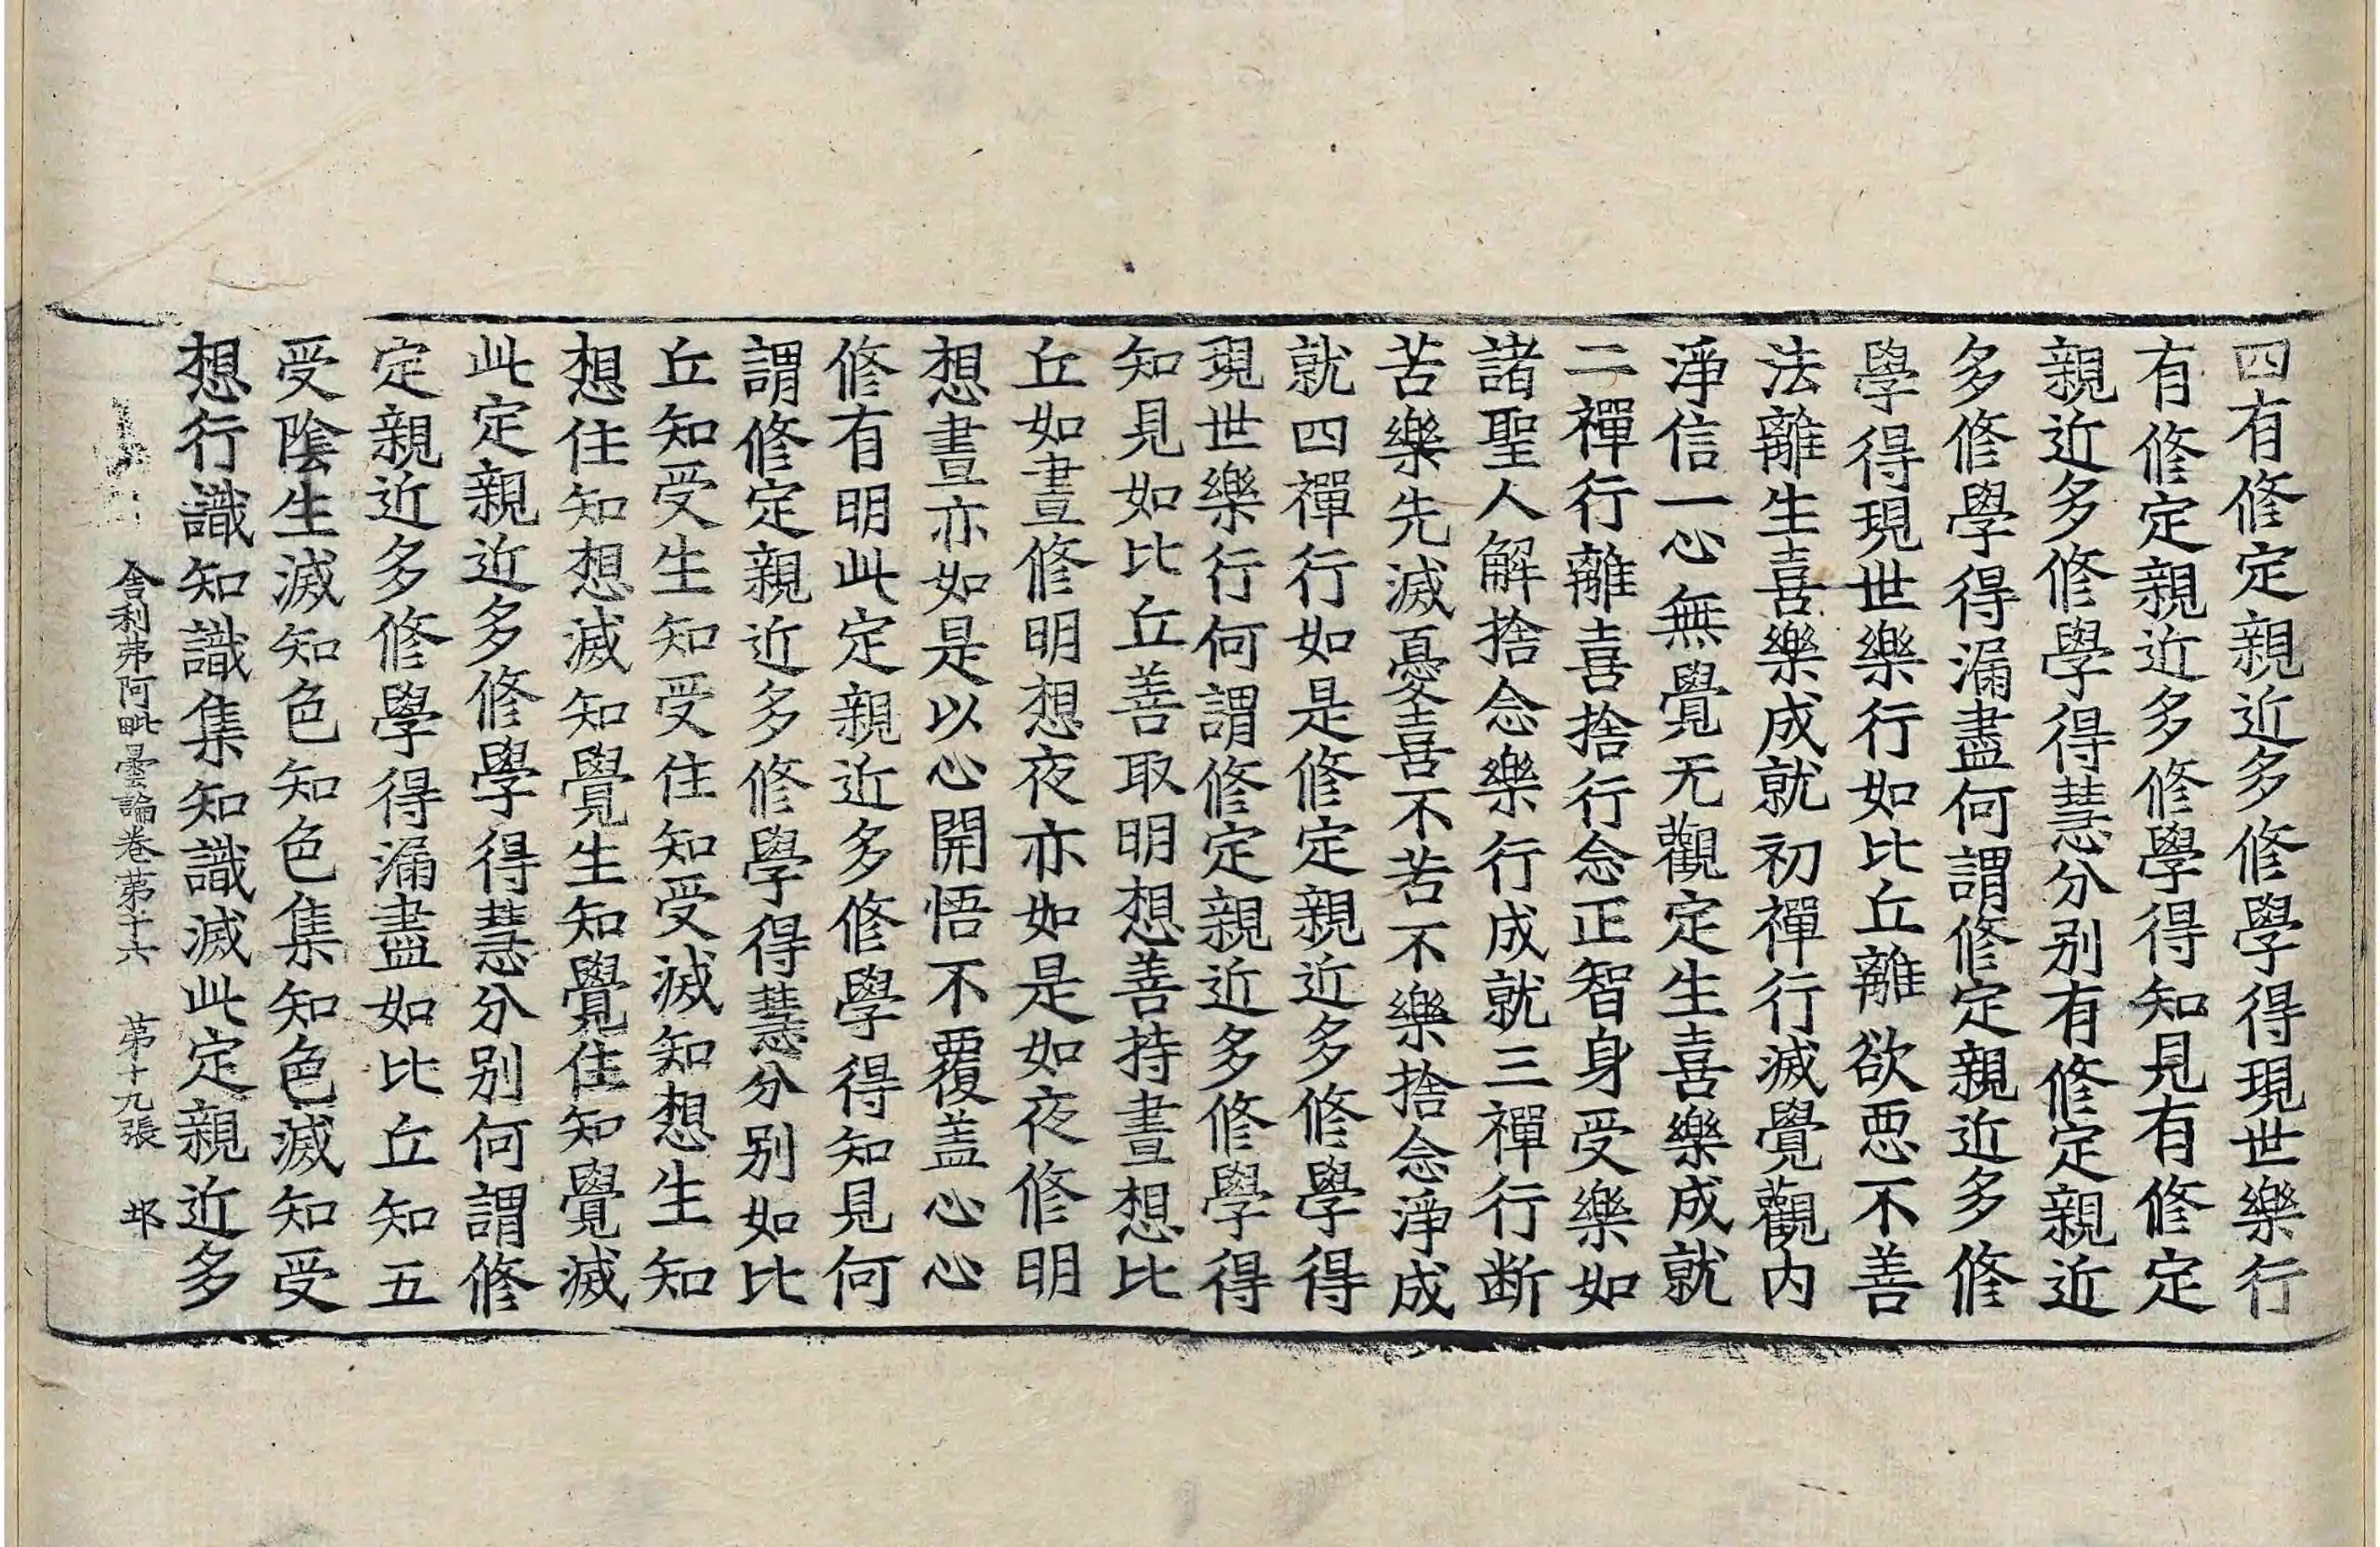 四有修定親近多修學得現世樂行
有修定親近多修學得知見有修定
親近多修學得慧分別有修定親近
多修學得漏盡何謂修定親近多修
學得現世樂行如比丘離欲惡不善
法離生喜樂成就初禪行滅覺觀内
淨信一心無覺无觀定生喜樂成就
二禪行離喜捨行念正智身受樂如
諸聖人解捨念樂行成就三禪行断
苦樂先滅憂喜不苦不樂捨念淨成
就四禪行如是修定親近多修學得
現世樂行何謂修定親近多修學得
知見如比丘善取明想善持晝想比
丘如晝修明想夜亦如是如夜修明
想晝亦如是以心開悟不覆盖心心
修有明此定親近多修學得知見何
謂修定親近多修學得慧分別如比
丘知受生知受住知受滅知想生知
想住知想滅知覺生知覺住知覺滅
此定親近多修學得慧分別何謂修
定親近多修學得漏盡如比丘知五
受陰生滅知色知色集知色滅知受
想行識知識集知識滅此定親近多
舍利弗阿毗曇論卷第十六 第十九張 邶